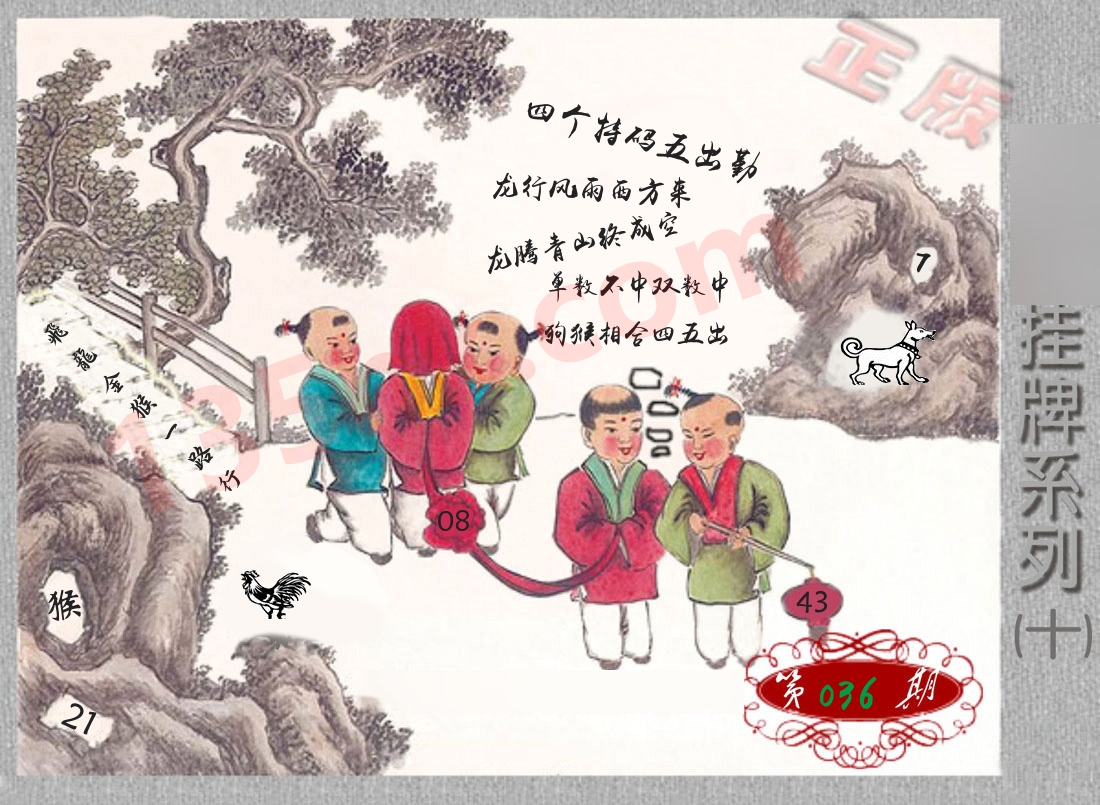 正版
四个特码五出勤
龙行风雨西方来
龙腾青山终成空
单数不中双数中
狗猴相合四五出
7
飛龍金猴一路行
08
43
猴
21
第036期
挂牌系列
(十)